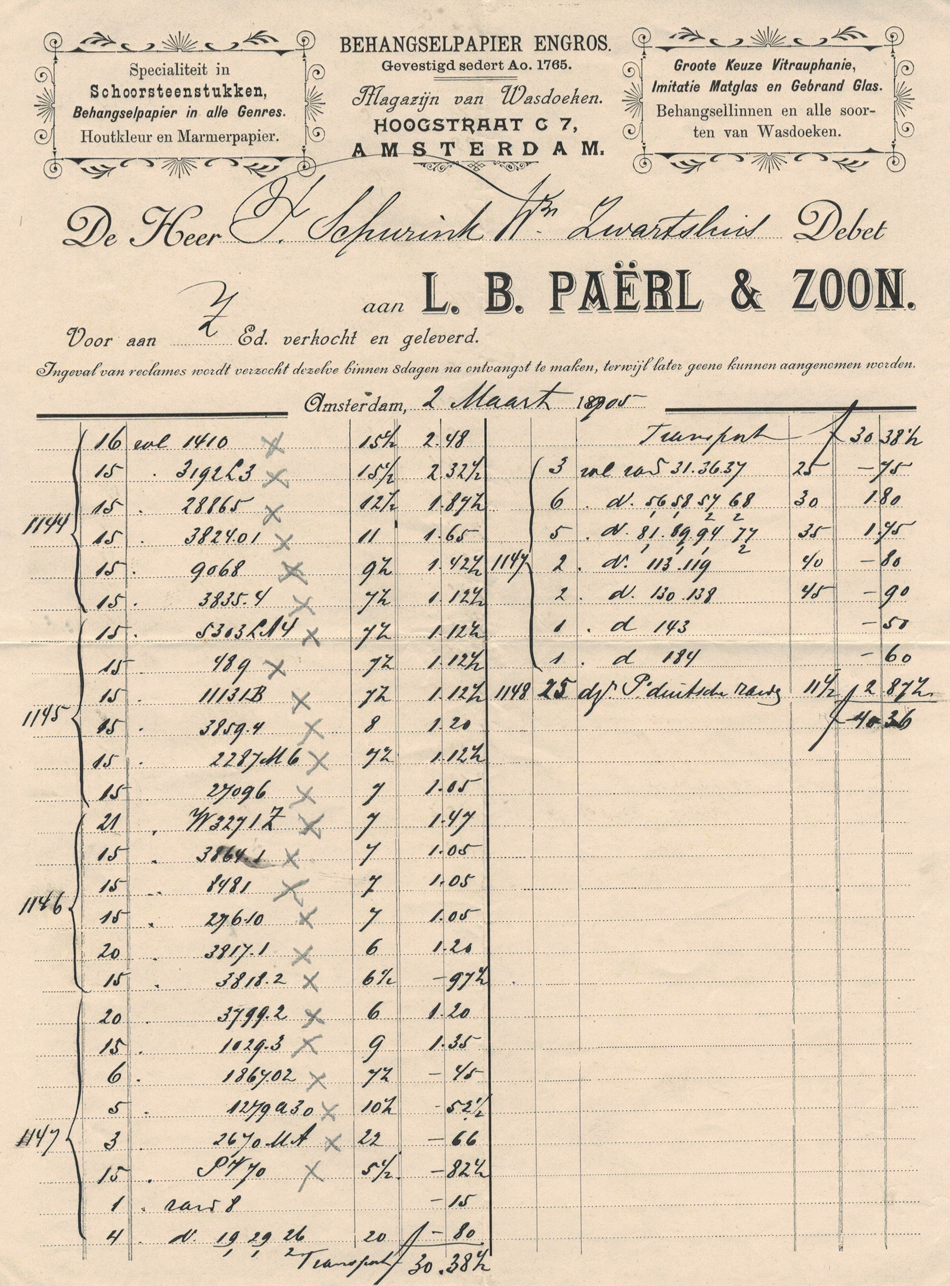 Specialiteit in
Schoorsteenstukken,
Behangselpapier in alle Genres.
Houtkleur en Marmerpapier.
BEHANGSELPAPIER ENGROS.
Gevestigd sedert Ao. 1765.
Magazijn van Wasdoeken.
HOOGSTRAAT C 7,
AMSTERDAM.
Groote Keuze Vitrauphanie,
Imitatie Matglas en Gebrand Glas.
Behangsellinnen en alle soor-
ten van Wasdoeken.
De Heer F. Schurink Wzn. Zwartsluis Debet
aan L. B. PAËRL & ZOON.
Voor aan Z Ed. verkocht en geleverd.
Ingeval van reclames wordt verzocht dezelve binnen 8dagen na ontvangst te maken, terwijl later geene kunnen aangenomen worden.
Amsterdam, 2 Maart 1905
1144
16 rol 1410 X 15½ 2.48
15 . 3192L3 X 15½ 2.32½
15 . 28865 X 12½ 1.87½
15 . 3824.01 X 11 1.65
15 . 9068 X 9½ 1.42½
15 . 3835.4 X 7½ 1.12½
1145
15 . 5303LA4 X 7½ 1.12½
15 489 X 7½ 1.12½
15 11131B X 7½ 1.12½
15 . 3859.4 X 8 1.20
15 . 2287M6 X 7½ 1.12½
15 . 27096 X 7 1.05
1146
21 . W3271Z X 7 1.47
15 . 3864.1 X 7 1.05
15 . 8481 X 7 1.05
15 . 27610 X 7 1.05
20 . 3817.1 X 6 1.20
15 3818.2 X 6½ -97½
1147
20 . 3799.2 X 6 1.20
15 . 1029.3 X 9 1.35
6 . 1867.02 X 7½ -45
5 1279a30 X 10½ -52½
3 . 2670MA X 22 -66
15 . 70 X 5½ -82½
1 . rand 8 -15
4 . d. 19 29 26 20 ƒ -80
1 1 2
Transport ƒ 30.38½
Transport ƒ 30 38½
1147
3 rol rand 31.36.37 25 -75
6 . d. 56 58 57 68 30 1.80
1 1 2 2
5 . d. 81.89 94 77 35 1.75
1 1 1 2
2 . d. 113.119 40 -80
2 . d. 130.138 45 -90
1 . d 143 -50
1 . d 184 -60
1148 25 duitsche 11½ ƒ 2 87½
ƒ 40.36